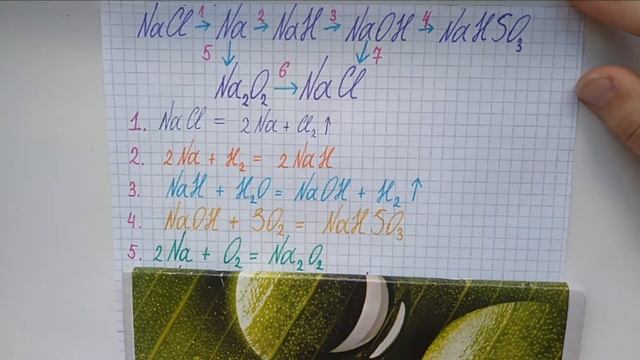 NaCl 1→ Na 2→ NaH 3→ NaOH 4→ NaHSO₃
5↓ ↓7
Na₂O₂ 6→ NaCl
1. NaCl = 2Na + Cl₂↑
2. 2Na + H₂ = 2NaH
3. NaH + H₂O = NaOH + H₂↑
4. NaOH + SO₂ = NaHSO₃
5. 2Na + O₂ = Na₂O₂